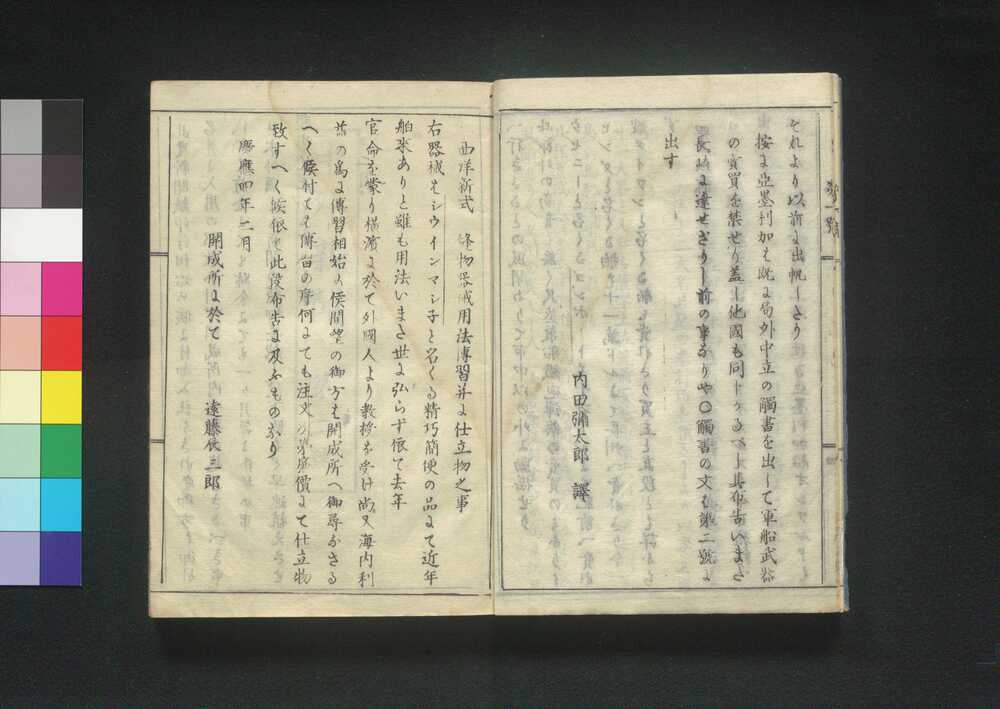 それより以前に出帆したり
按に亜墨利加は既に局外中立の觸書を出して軍船武器
の賣買を禁せり蓋し他國も同しかるへし其布告いまた
長崎に達せざりし前の事なりや〇觸書の文は第二號に
出す
内田彌太郎 譯
西洋新式 縫物器械用法傳習并に仕立物之事
右器械はシウインマシ子と名くる精巧簡便の品にて近年
舶来ありと雖も用法いまた世に弘らず依て去年
官命を蒙り横濱に於て外國人より教授を受け尚又海内利
益の為に傳習相始め候間望の御方は開成所へ御尋なさる
へく候付ては傳習の序何にても注文の
價にて仕立物
致すへく候依て此段布告に及ふものなり
慶應四年二月
開成所に於て 遠藤辰三郎